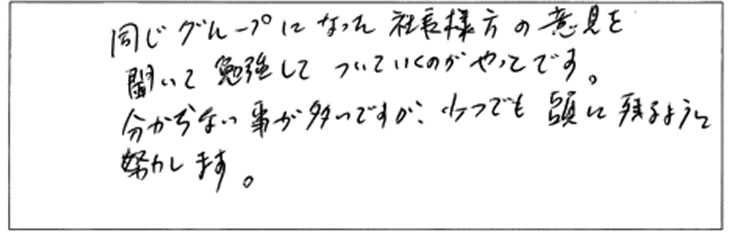 同じグループになった社長様方の意見を
聞いて勉強してついていくのがやっとです。
分からない事が多いですが、少しでも頭に残るように
努力します。